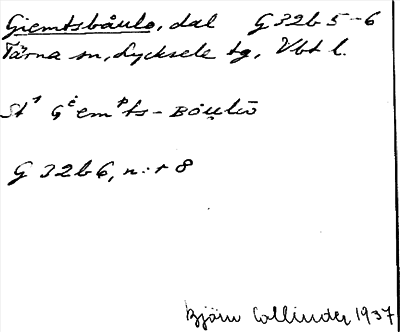 Giemtsbåulo, dal G 32b 5-6
Tärna sn, Lycksele tg, Vbt l.
G 32b6, n:r 8
Björn Collinder 1937